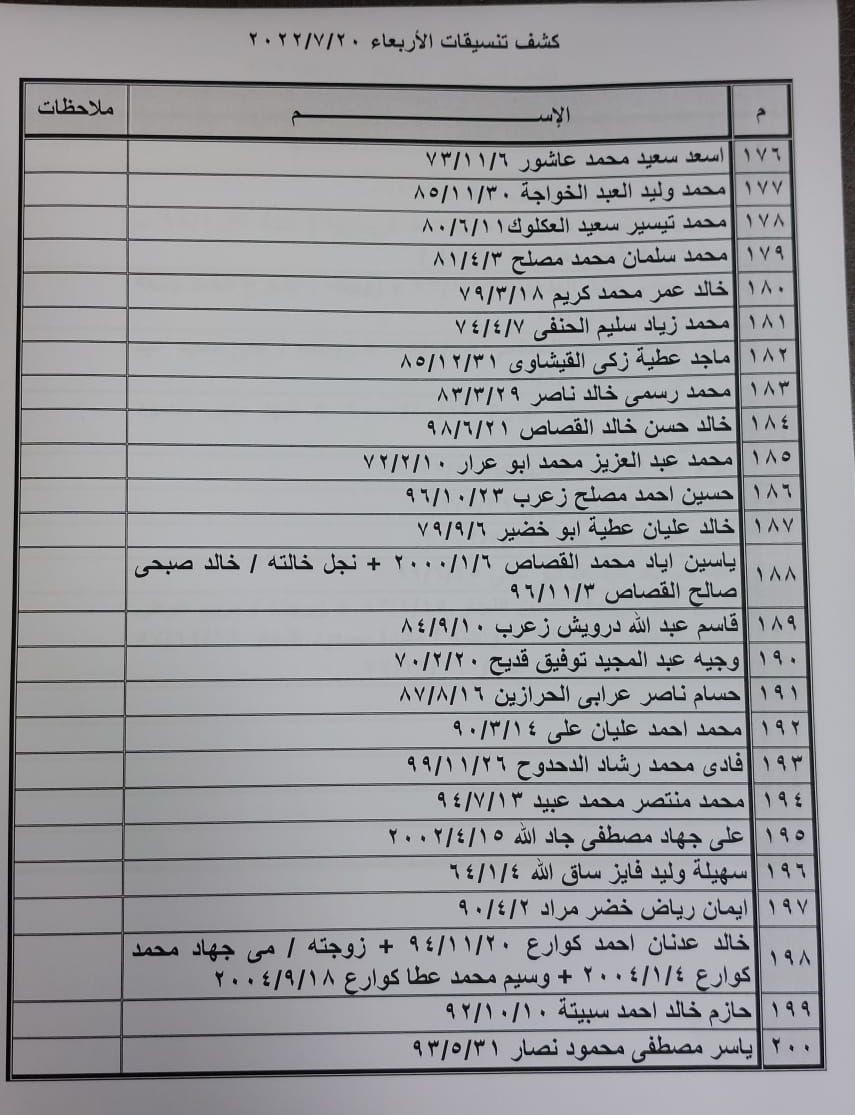 كشف تنسيقات الأربعاء ٢٠٢٢/٧/٢٠
م الإســــــــــــم ملاحظات
١٧٦ اسعد سعيد محمد عاشور ٧٣/١١/٦
١٧٧ محمد وليد العبد الخواجة ٨٥/١١/٣٠
١٧٨ محمد تيسير سعيد العكلوك٨٠/٦/١١
١٧٩ محمد سلمان محمد مصلح ٨١/٤/٣
١٨٠ خالد عمر محمد كريم ٧٩/٣/١٨
١٨١ محمد زياد سليم الحنفى ٧٤/٤/٧
١٨٢ ماجد عطية زكى القيشاوى ٨٥/١٢/٣١
١٨٣ محمد رسمى خالد ناصر ٨٣/٣/٢٩
١٨٤ خالد حسن خالد القصاص ٩٨/٦/٢١
١٨٥ محمد عبد العزيز محمد ابو عرار ٧٢/٢/١٠
١٨٦ حسين احمد مصلح زعرب ٩٦/١٠/٢٣
١٨٧ خالد عليان عطية ابو خضير ٧٩/٩/٦
١٨٨ ياسين اياد محمد القصاص ٢٠٠٠/١/٦ + نجل خالته / خالد صبحى
صالح القصاص ٩٦/١١/٣
١٨٩ قاسم عبد الله درويش زعرب ٨٤/٩/١٠
١٩٠ وجيه عبد المجيد توفيق قديح ٧٠/٢/٢٠
١٩١ حسام ناصر عرابى الحرازين ٨٧/٨/١٦
١٩٢ محمد احمد عليان على ٩٠/٣/١٤
١٩٣ فادى محمد رشاد الدحدوح ٩٩/١١/٢٦
١٩٤ محمد منتصر محمد عبيد ٩٤/٧/١٣
١٩٥ على جهاد مصطفى جاد الله ٢٠٠٢/٤/١٥
١٩٦ سهيلة وليد فايز ساق الله ٦٤/١/٤
١٩٧ ايمان رياض خضر مراد ٩٠/٤/٢
١٩٨ خالد عدنان احمد كوارع ٩٤/١١/٢٠ + زوجته / مى جهاد محمد
كوارع ٢٠٠٤/١/٤ + وسيم محمد عطا كوارع ٢٠٠٤/٩/١٨
١٩٩ حازم خالد احمد سبيتة ٩٢/١٠/١٠
٢٠٠ ياسر مصطفى محمود نصار ٩٣/٥/٣١